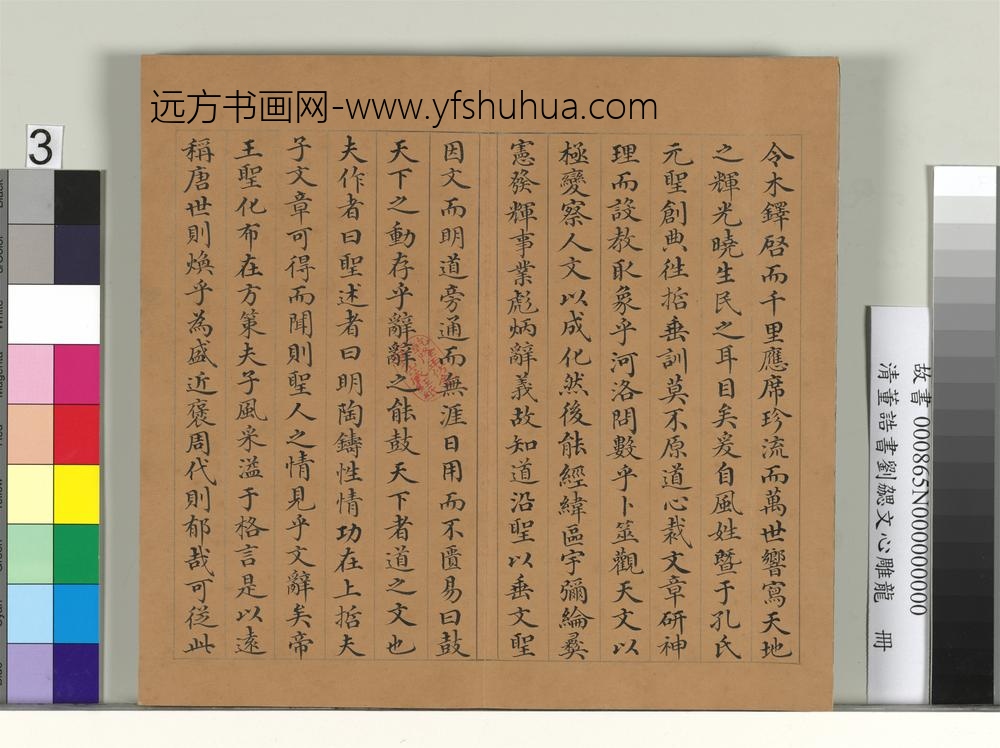 远方书画网-www.yfshuhua.com
3
令木鐸啓而千里應席珍流而萬世響寫天地
之輝光曉生民之耳目矣爰自風姓曁于孔氏
元聖創典徃哲垂訓莫不原道心裁文章研神
理而設教取象乎河洛問數乎卜筮觀天文以
極變察人文以成化然後能經緯區宇彌綸彞
憲發輝事業彪炳辭義故知道沿聖以垂文聖
因文而明道旁通而無涯日用而不匱易曰鼓
天下之動存乎辭辭之能鼓天下者道之文也
夫作者曰聖述者曰明陶鑄性情功在上哲夫
子文章可得而聞則聖人之情見乎文辭矣帝
王聖化布在方策夫子風采溢于格言是以遠
稱唐世則煥乎為盛近褒周代則郁哉可從此
故書 000865N000000000
清董誥書劉勰文心雕龍 冊